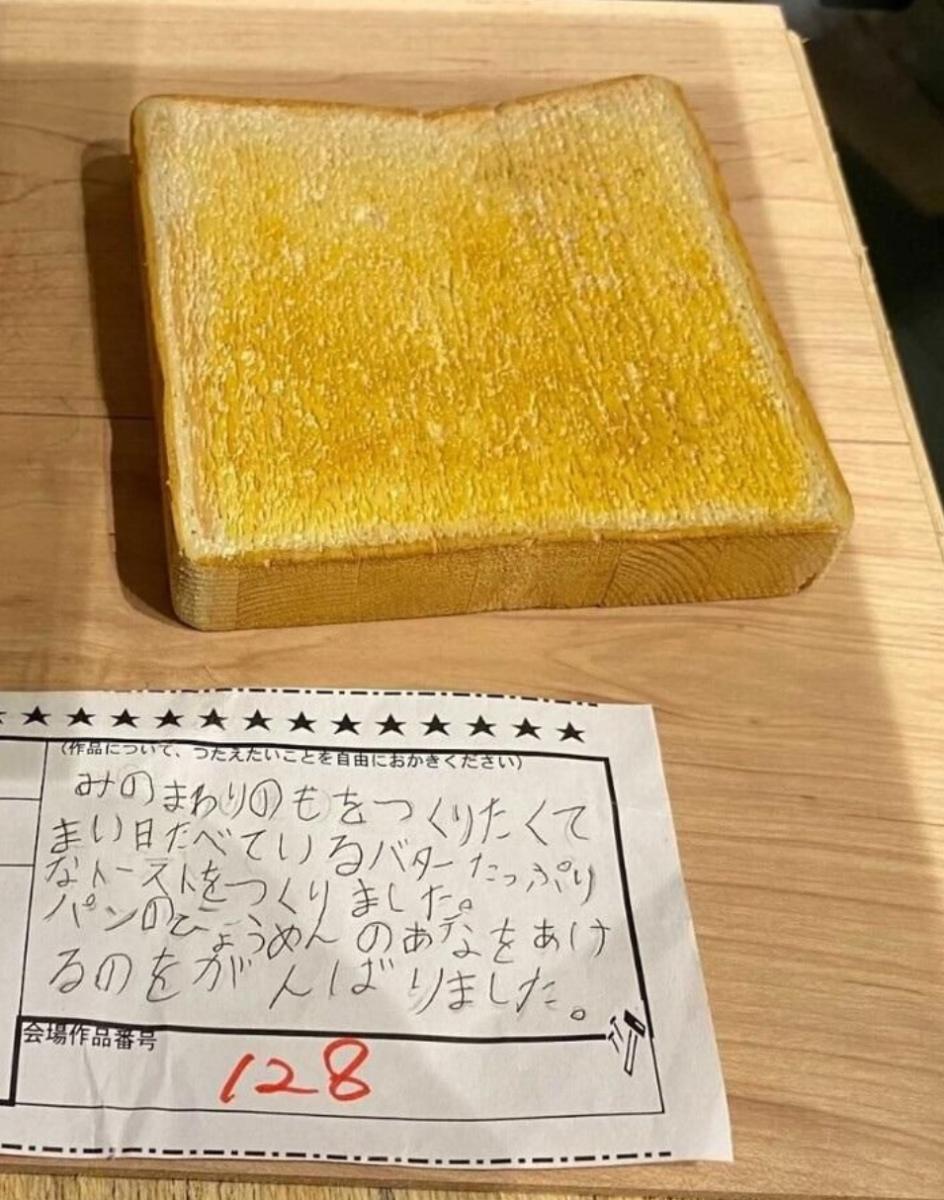 (作品について、つたえたいことを自由におかきください)
みのまわりのもをつくりたくて
まい日たべているバターたっぷり
なトーストをつくりました。
パンのひょうめんのあなをあけ
るのをがんばりました。
会場作品番号
128